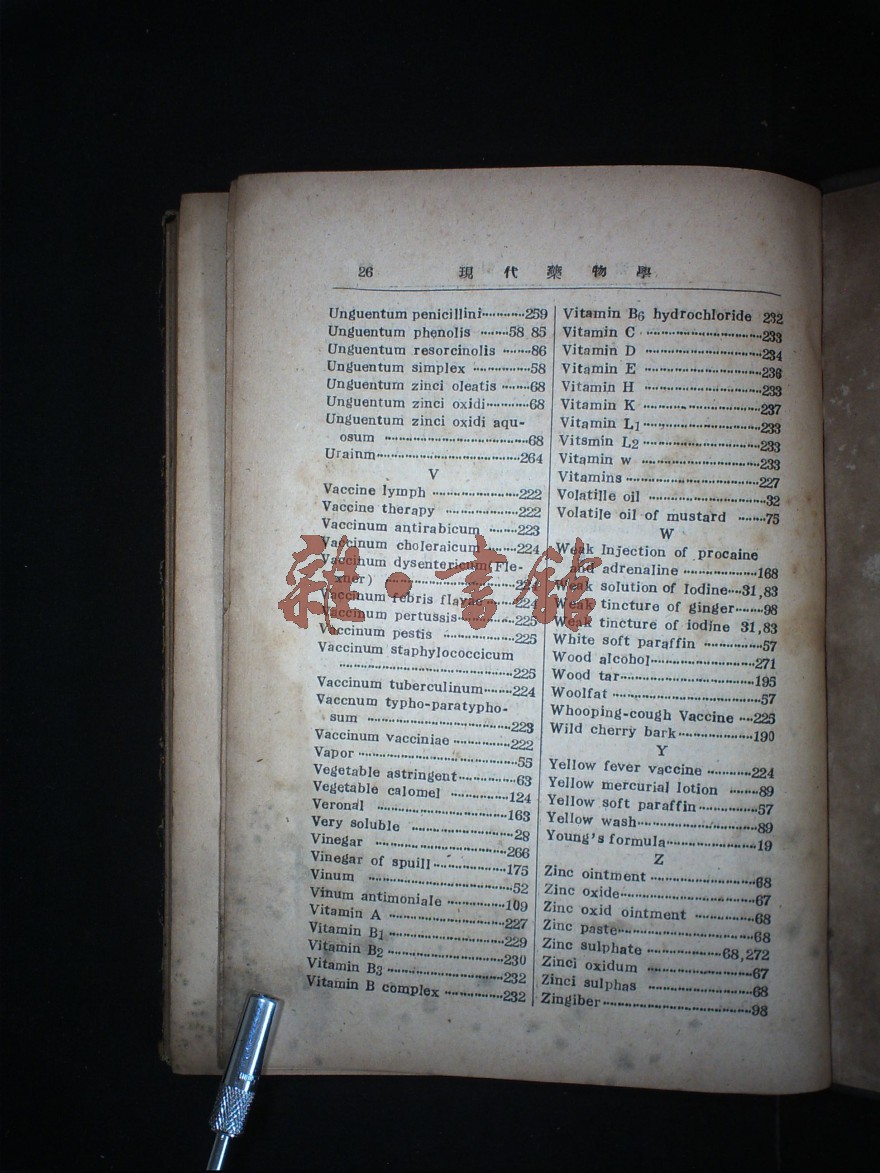 26 現代藥物學
Unguentum penicillini············259
Unguentum phenolis ········58 85
Unguentum resorcinolis ········86
Unguentum simplex ················58
Unguentum zinci oleatis ········68
Unguentum zinci oxidi············68
Unguentum zinci oxidi aqu-
osum ········································68
Urainm········································264
V
Vaccine lymph ························222
Vaccine therapy ····················222
Vaccinum antirabicum ········223
Vaccinum choleraicum ········224
Vaccinum dysentericum(Fle-
xner) ····································224
Vaccinum febris flavae ········224
Vaccinum pertussis················225
Vaccinum pestis ····················225
Vaccinum staphylococcicum
················································225
Vaccinum tuberculinum········224
Vaccnum typho-paratypho-
sum ········································223
Vaccinum vacciniae ················222
Vapor ············································55
Vegetable astringent················63
Vegetable calomel ················124
Veronal ····································163
Very soluble ····························28
Vinegar ····································266
Vinegar of spuill····················175
Vinum ········································52
Vinum antimoniale ················109
Vitamin A ································227
Vitamin B1 ································229
Vitamin B2 ································230
Vitamin B3 ································232
Vitamin B complex ················232
Vitamin B6 hydrochloride 232
Vitamin C ································233
Vitamin D ································234
Vitamin E ································236
Vitamin H ································233
Vitamin K ································237
Vitamin L1 ································233
Vitsmin L2 ································233
Vitamin w ································233
Vitamins ····································227
Volatille oil ································32
Volatile oil of mustard ········75
W
Weak Injection of procaine
and adrenaline ····················168
Weak solution of Iodine····31,83
Weak tincture of ginger········98
Weak tincture of iodine 31,83
White soft paraffin ················57
Wood alcohol····························271
Wood tar····································195
Woolfat ········································57
Whooping-cough Vaccine ····225
Wild cherry bark····················190
Y
Yellow fever vaccine ············224
Yellow mercurial lotion ········89
Yellow soft paraffin················57
Yellow wash································89
Young's formula························19
Z
Zinc ointment ····························68
Zinc oxide····································67
Zinc oxid ointment ················68
Zinc paste····································68
Zinc sulphate ····················68,272
Zinci oxidum ····························67
Zinci sulphas ····························68
Zingiber········································98
雜·書館